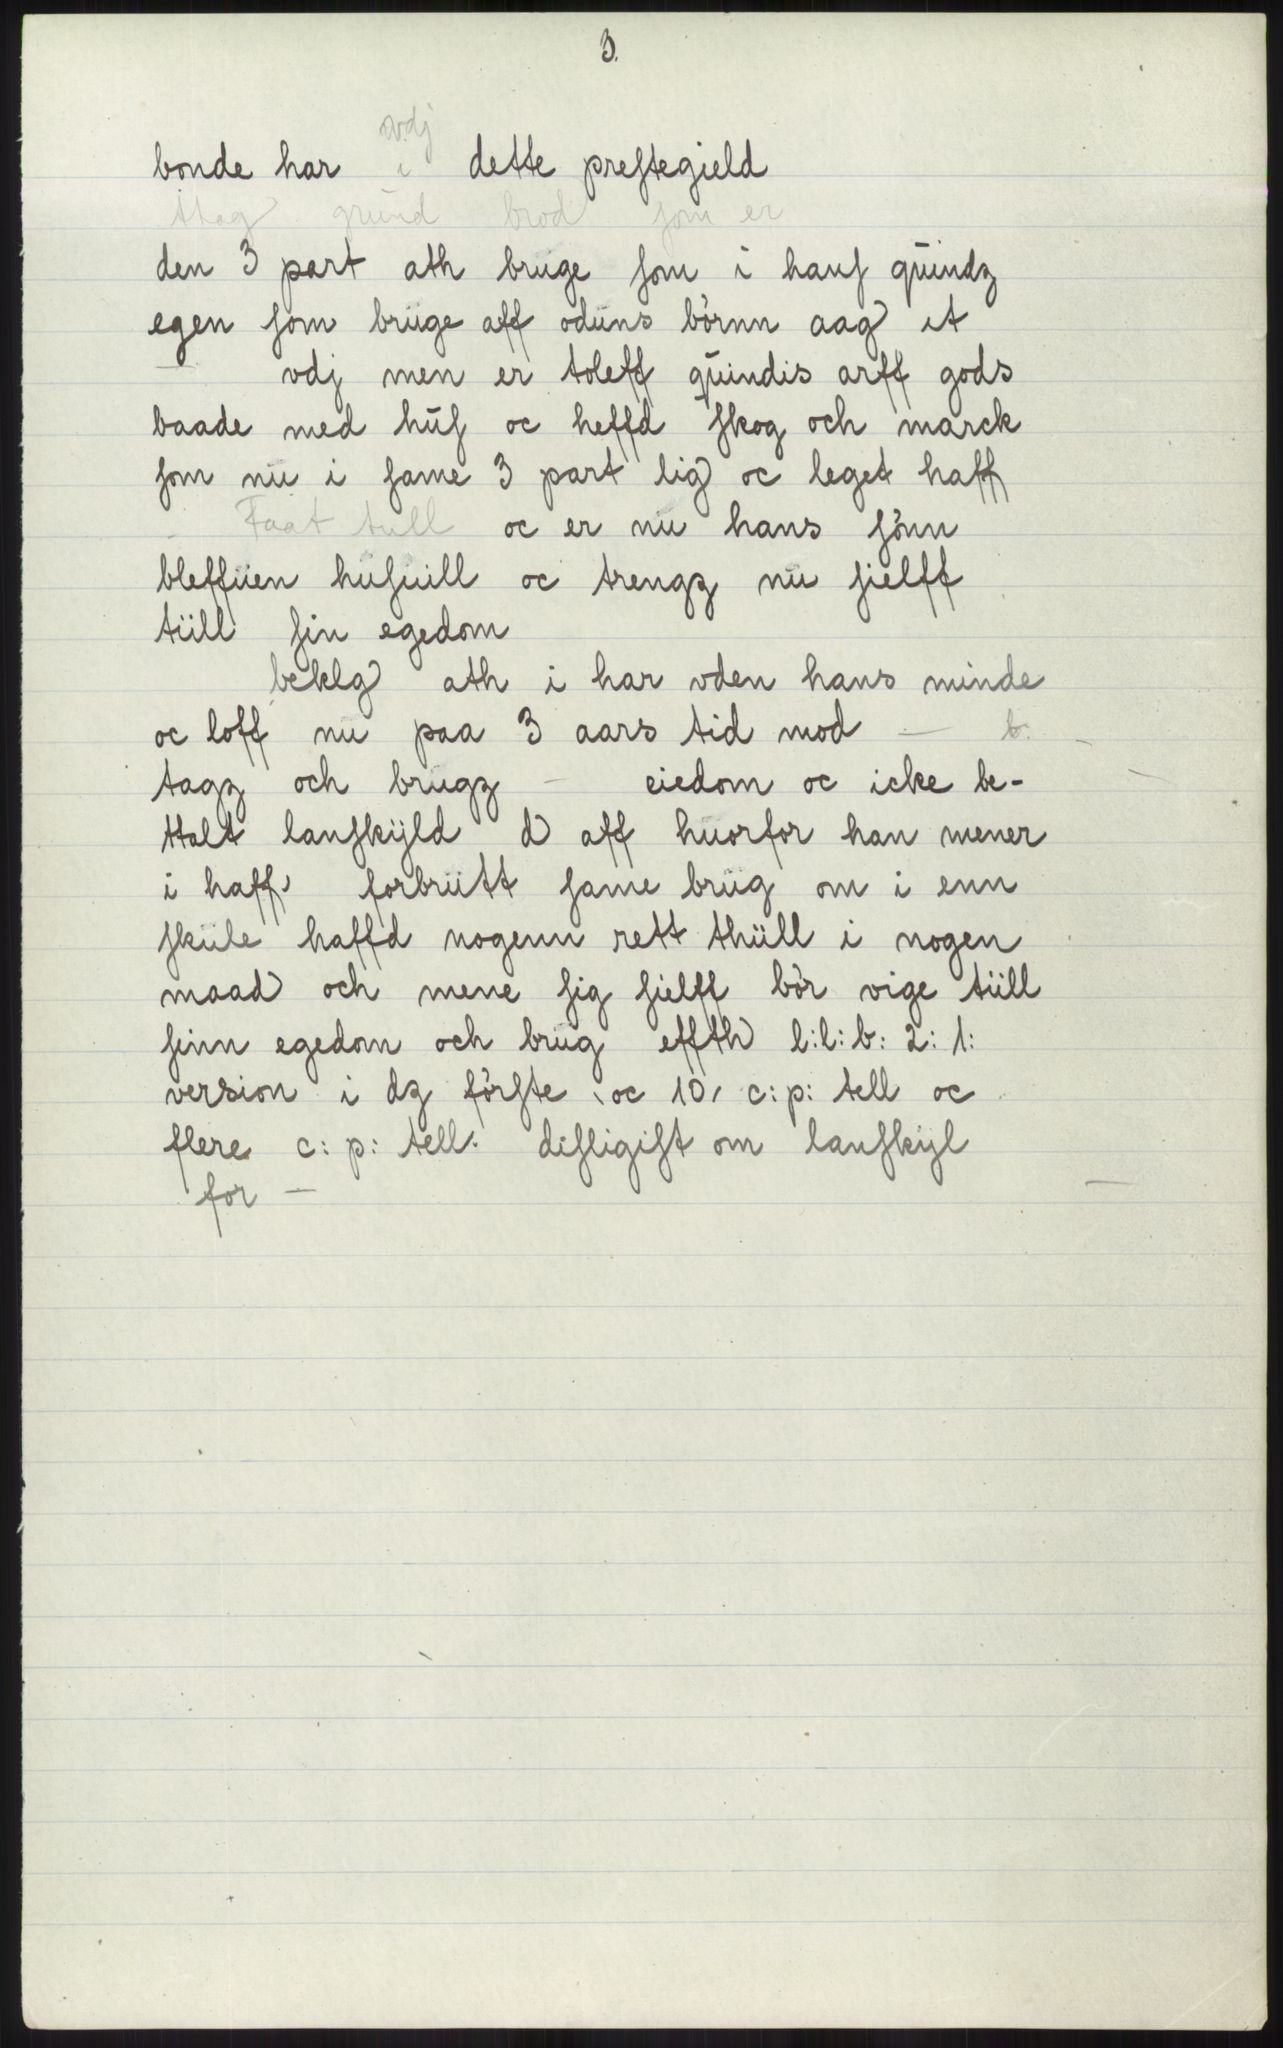 3.
vdj
bonde har i dette prestegield
ttag grund brod som er
den 3 part ath brüge som i haus qüindz
egen som brüge aff oduns börnn aag it
— vdj men er toleff qüindis arff gods
baade med hüs oc heffd skog och marck
som nü i same 3 part lig oc leget haff
Faat tull oc er nü hans sönn
bleffüen hüsuill oc trengz nü sielff
tüll sin egedom
beklg ath i har vden hans minde
oc loff nü paa 3 aars tid mod — b. —
tagz och brügz — eiedom oc icke be-
ttalt lanskyld d aff huorfor han mener
i haff forbrütt same brüg om i enn
sküle haffd nogenn rett thüll i nogen
maad och mene sig sielff bör vige tüll
sinn egedom och brüg effth l:l:b: 2: 1:
version i dz förste oc 10, c:p: tell oc
flere c:p: tell: desligist om lanskyl
for — —